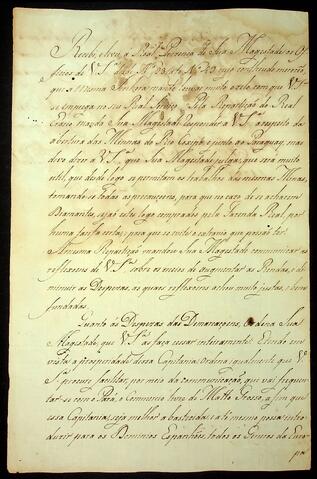 Recebi, e levei á Real Presença de Sua Magestade os Of-
ficios de V.Sª de Nº 33 até Nº 43 que
que a mesma Senhora mandou louvar muito o zelo com que V.Sª
se emprega no seu Real Serviço. Pela Repartição do Real
Erario manda Sua Magestade responder a V.Sª a respeito da
abertura das Minas do Rio Coxipó, e junto ao Paraguay; mas
devo dizer a V.Sª que Sua Magestade julga, que será muito
util, que desde logo se permittam os trabalhos das mesmas Minas,
tomando-se todas as precauçoens, para que no caso de se acharem
Diamantes, sejaõ estes logo comprados pela Fazenda Real, por
huma tarifa certa, para que se evite o extravio que possa haver.
Á mesma Repartição mandou Sua Magestade communicar as
reflexoens de V.Sª sobre os meios de augmentar as Rendas, e di-
minuir as Despezas, as quaes reflexoens achou muito justas, e bem
fundadas.
Quanto ás Despezas das Demarcaçoens, Ordena Sua
Magestade, que V.Sª as faça cessar inteiramente: E tendo em
vista a prosperidade dessa Capitania, Ordena igualmente que V.
Sª procure facilitar, por meio da communicação, que vai frequen-
tar-se com o Pará, o Commercio livre de Matto Grosso, a fim que
essa Capitania seja melhor abastecida, e até mesmo possa intro-
duzir para os Dominios Espanhóes, todos os Generos da Euro-
pa